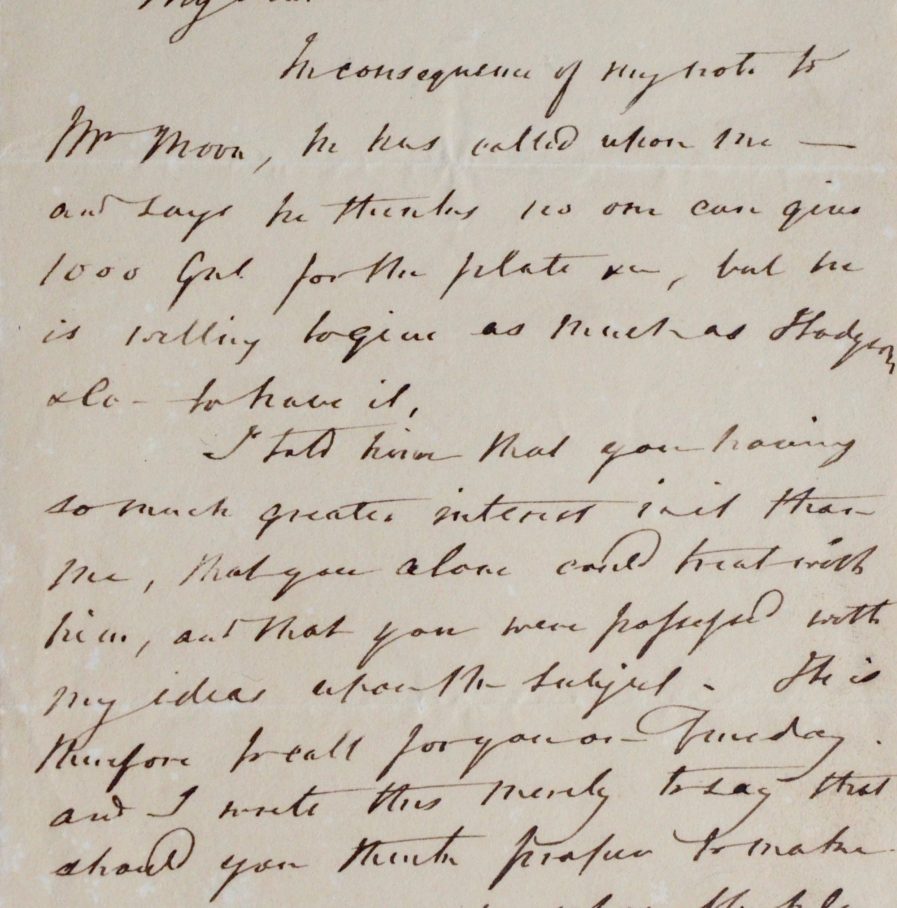 My Dear
In consequence of my note to
Mr Moon, he has called upon me —
and says he thinks no one can give
1000 Gns. for the plate &c, but he
is willing to give as much as Hodgson
& Co - to have it,
I told him that you having
so much greater interest in it than
me, that you alone could treat with
him, and that you were possessed with
my ideas upon the subject - He is
therefore to call for you on Tuesday.
and I write this merely to say that
should you think proper to make